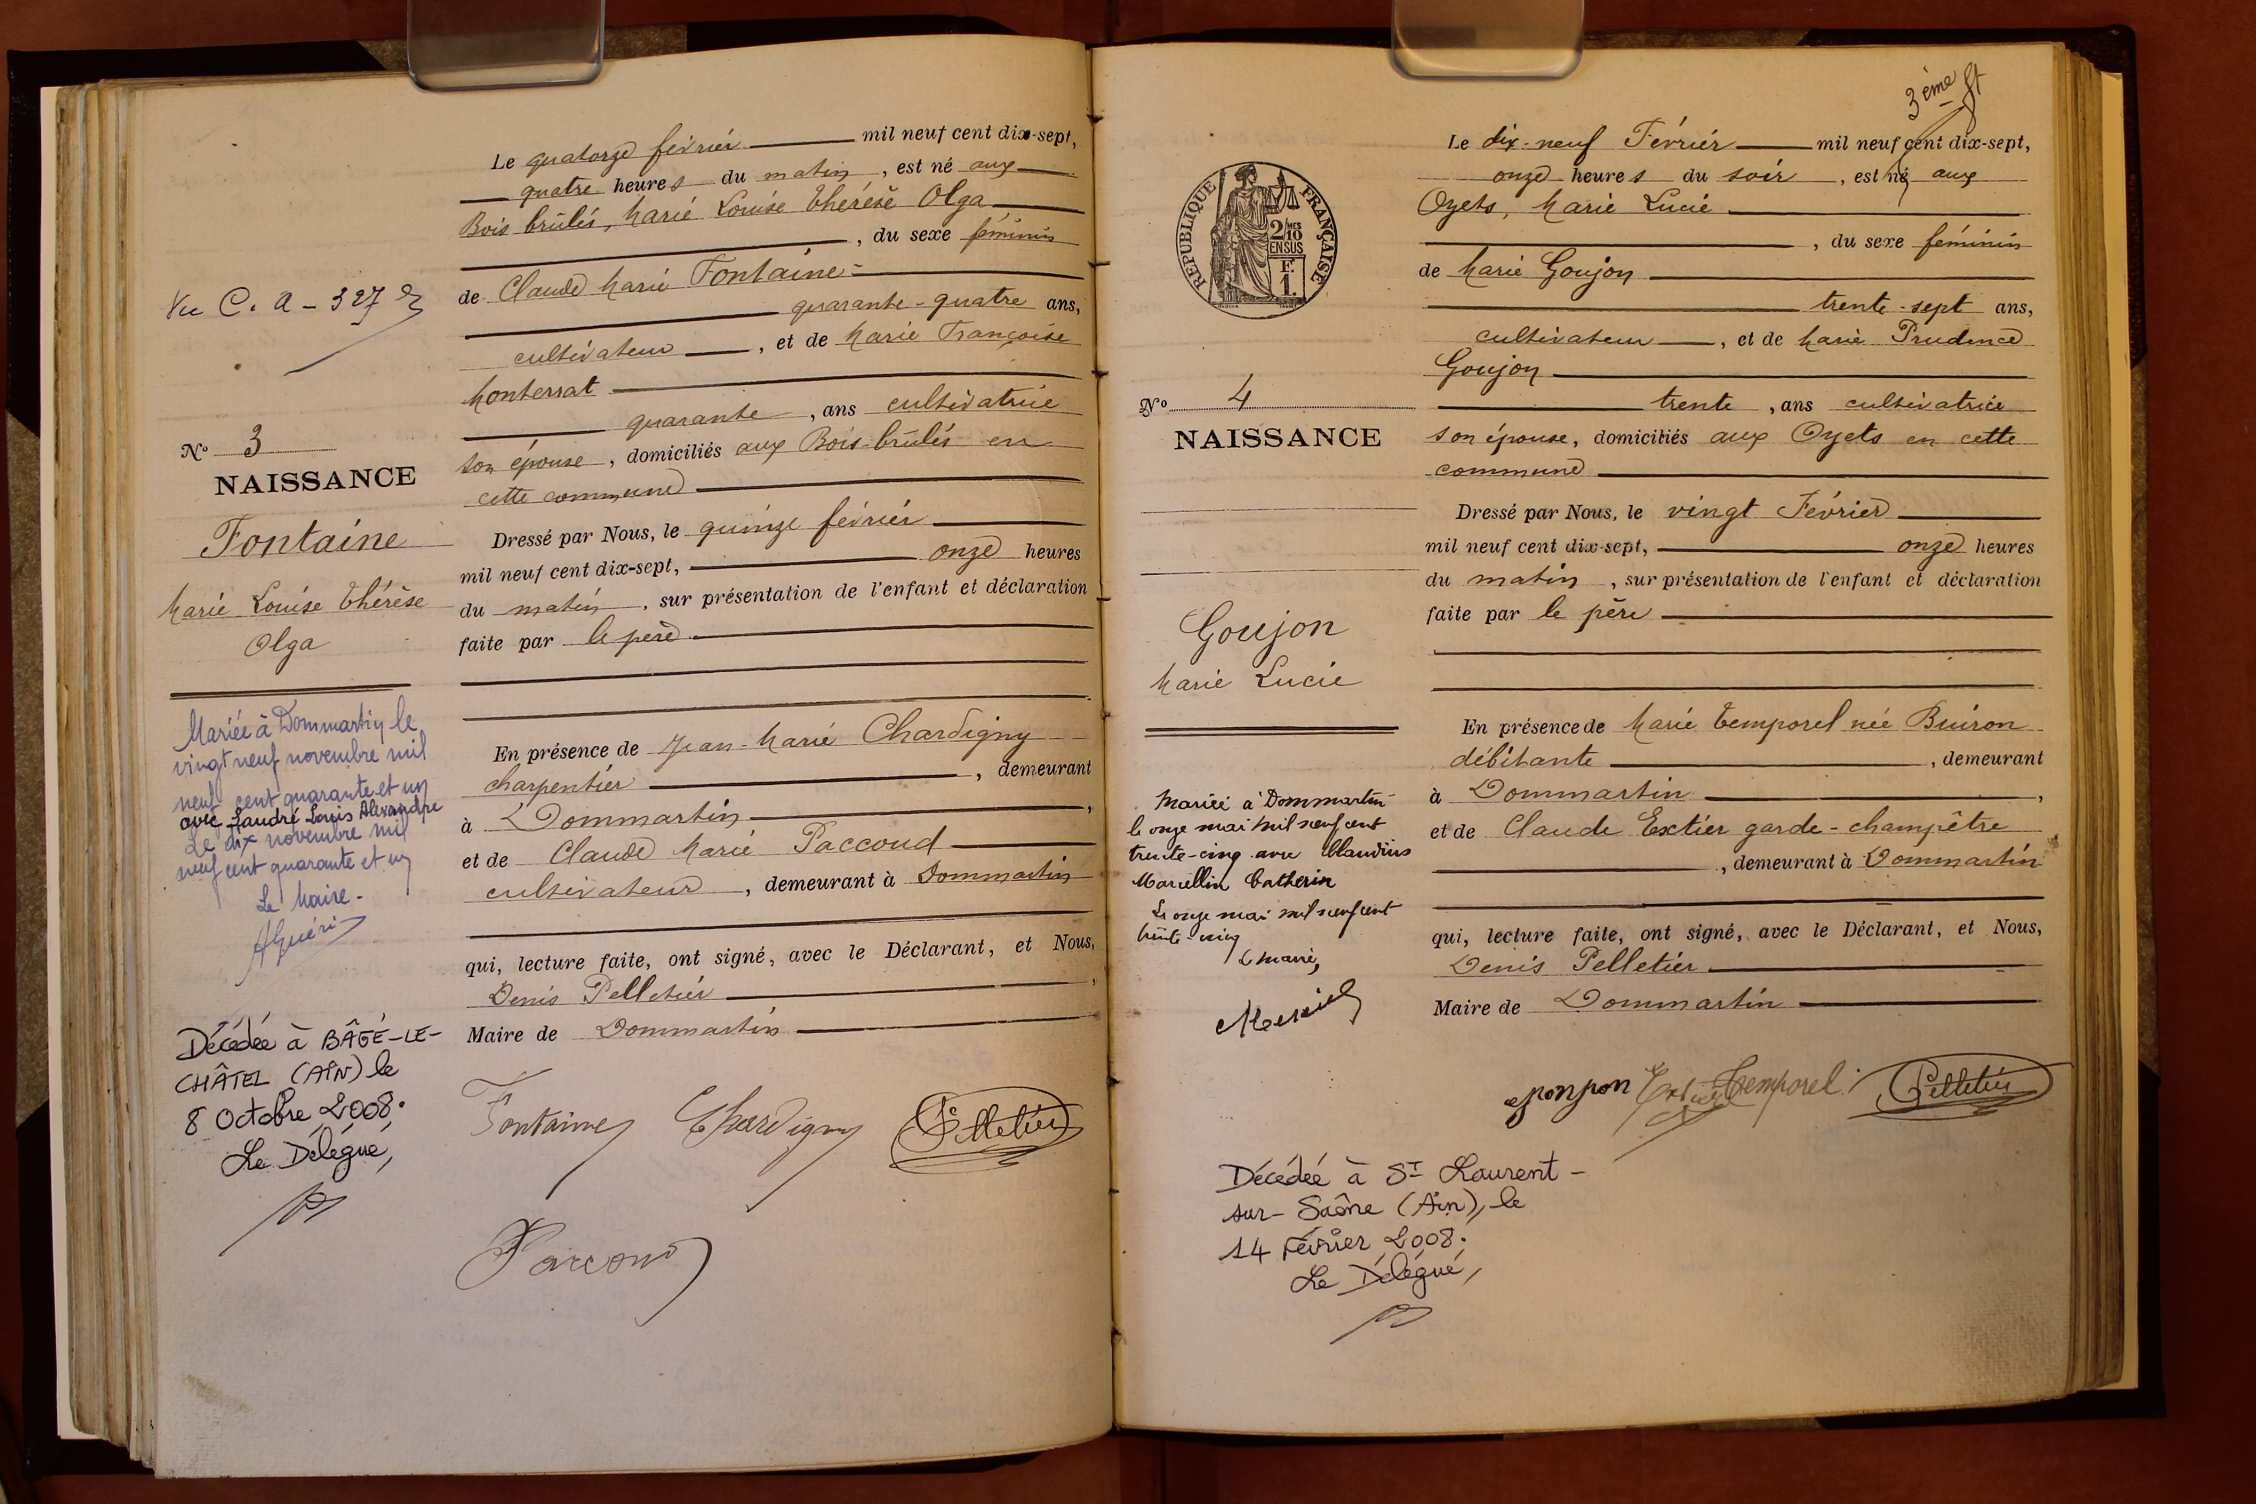 Le quatorze février mil neuf cent dix-sept,
quatre heures du matin, est né aux
Bois brûlés, Marie Louise Thérèse Olga
, du sexe féminin
de Claude Marie Fontaine
quarante-quatre ans,
cultivateur, et de Marie Françoise
Monterrat
quarante, ans cultivatrice
son épouse, domiciliés aux Bois-brûlés en
cette commune
Dressé par Nous, le quinze février
mil neuf cent dix-sept, onze heures
du matin, sur présentation de l'enfant et déclaration
faite par le père
En présence de Jean-Marie Chardigny
charpentier, demeurant
à Dommartin,
et de Claude Marie Paccoud
cultivateur, demeurant à Dommartin
qui, lecture faite, ont signé, avec le Déclarant, et Nous,
Denis Pelletier,
Maire de Dommartin
Fontaine Chardigny Pelletier
Paccoud
Vu C. a - 327
No 3
NAISSANCE
Fontaine
Marie Louise Thérèse
Olga
Mariée à Dommartin le
vingt neuf novembre mil
neuf cent quarante et un
avec Laudré Louis Alexandre
Le dix novembre mil
neuf cent quarante et un
Le Maire-
Décédée à BÂGÉ-LE-
CHÂTEL (AIN) le
8 Octobre 2008.
Le Délégué,
3ème ft
Le dix-neuf Février mil neuf cent dix-sept,
onze heures du soir, est né aux
Oyets, Marie Lucie
, du sexe féminin
de Marie Goujon
trente-sept ans,
cultivateur, et de Marie Prudence
Goujon
trente, ans cultivatrice
son épouse, domiciliés aux Oyets en cette
commune
Dressé par Nous, le vingt Février
mil neuf cent dix-sept, onze heures
du matin, sur présentation de l'enfant et déclaration
faite par le père
En présence de Marie Temporel née Buiron
débitante, demeurant
à Dommartin,
et de Claude Extier garde-champêtre
, demeurant à Dommartin
qui, lecture faite, ont signé, avec le Déclarant, et Nous,
Denis Pelletier
Maire de Dommartin
Extier Temporel Pelletier
RÉPUBLIQUE FRANÇAISE
2/10MES
EN SUS
F.
1.
No 4
NAISSANCE
Goujon
Marie Lucie
Mariée à Dommartin
le onze mai mil neuf cent
trente-cinq avec Claudius
Marcellin Catherin
Le onze mai mil neuf cent
trente-cinq
Le maire,
Décédée à St Laurent-
sur-Saône (Ain), le
14 Février 2008.
Le Délégué,